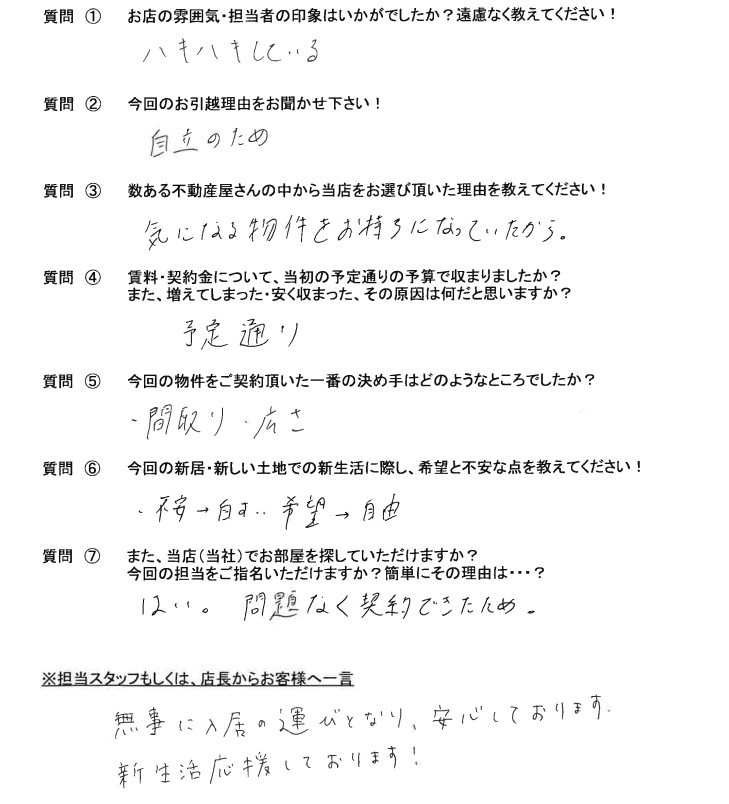 質問 ① お店の雰囲気・担当者の印象はいかがでしたか？遠慮なく教えてください！
ハキハキしている
質問 ② 今回のお引越理由をお聞かせ下さい！
自立のため
質問 ③ 数ある不動産屋さんの中から当店をお選び頂いた理由を教えてください！
気になる物件をお持ちになっていたから。
質問 ④ 賃料・契約金について、当初の予定通りの予算で収まりましたか？
また、増えてしまった・安く収まった、その原因は何だと思いますか？
予定通り
質問 ⑤ 今回の物件をご契約頂いた一番の決め手はどのようなところでしたか？
・間取り ・広さ
質問 ⑥ 今回の新居・新しい土地での新生活に際し、希望と不安な点を教えてください！
・不安→ 希望→自由
質問 ⑦ また、当店（当社）でお部屋を探していただけますか？
今回の担当をご指名いただけますか？簡単にその理由は・・・？
はい。 問題なく契約できたため。
※担当スタッフもしくは、店長からお客様へ一言
無事に入居の運びとなり、安心しております.
新生活応援しております！